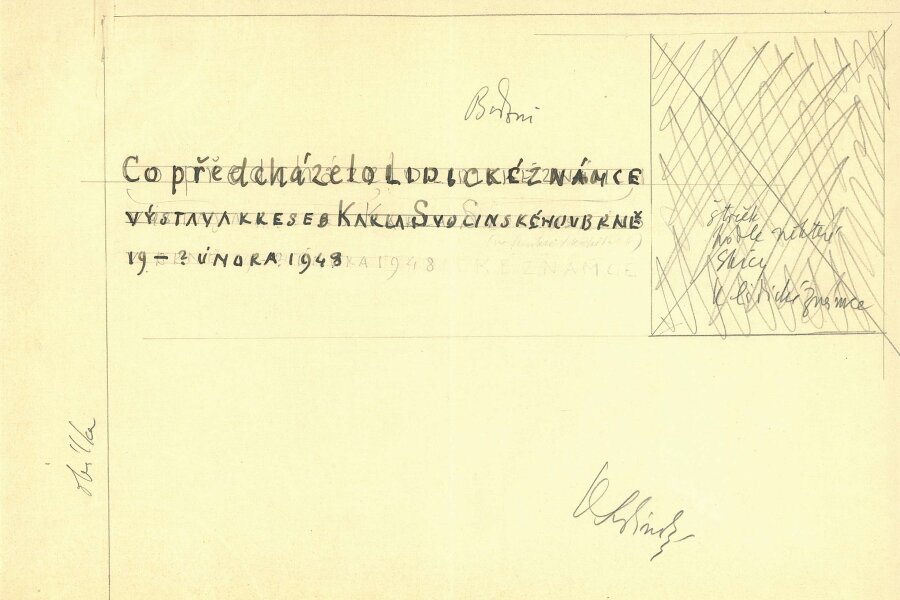 Bodoni
Co předcházelo LIDICKÉ ZNÁMCE
VÝSTAVA KRESEB KARLA SVOLINSKÉHO V BRNĚ
19 – ? ÚNORA 1948
štoček
podle některé
skicy
k lidické známce
obálka